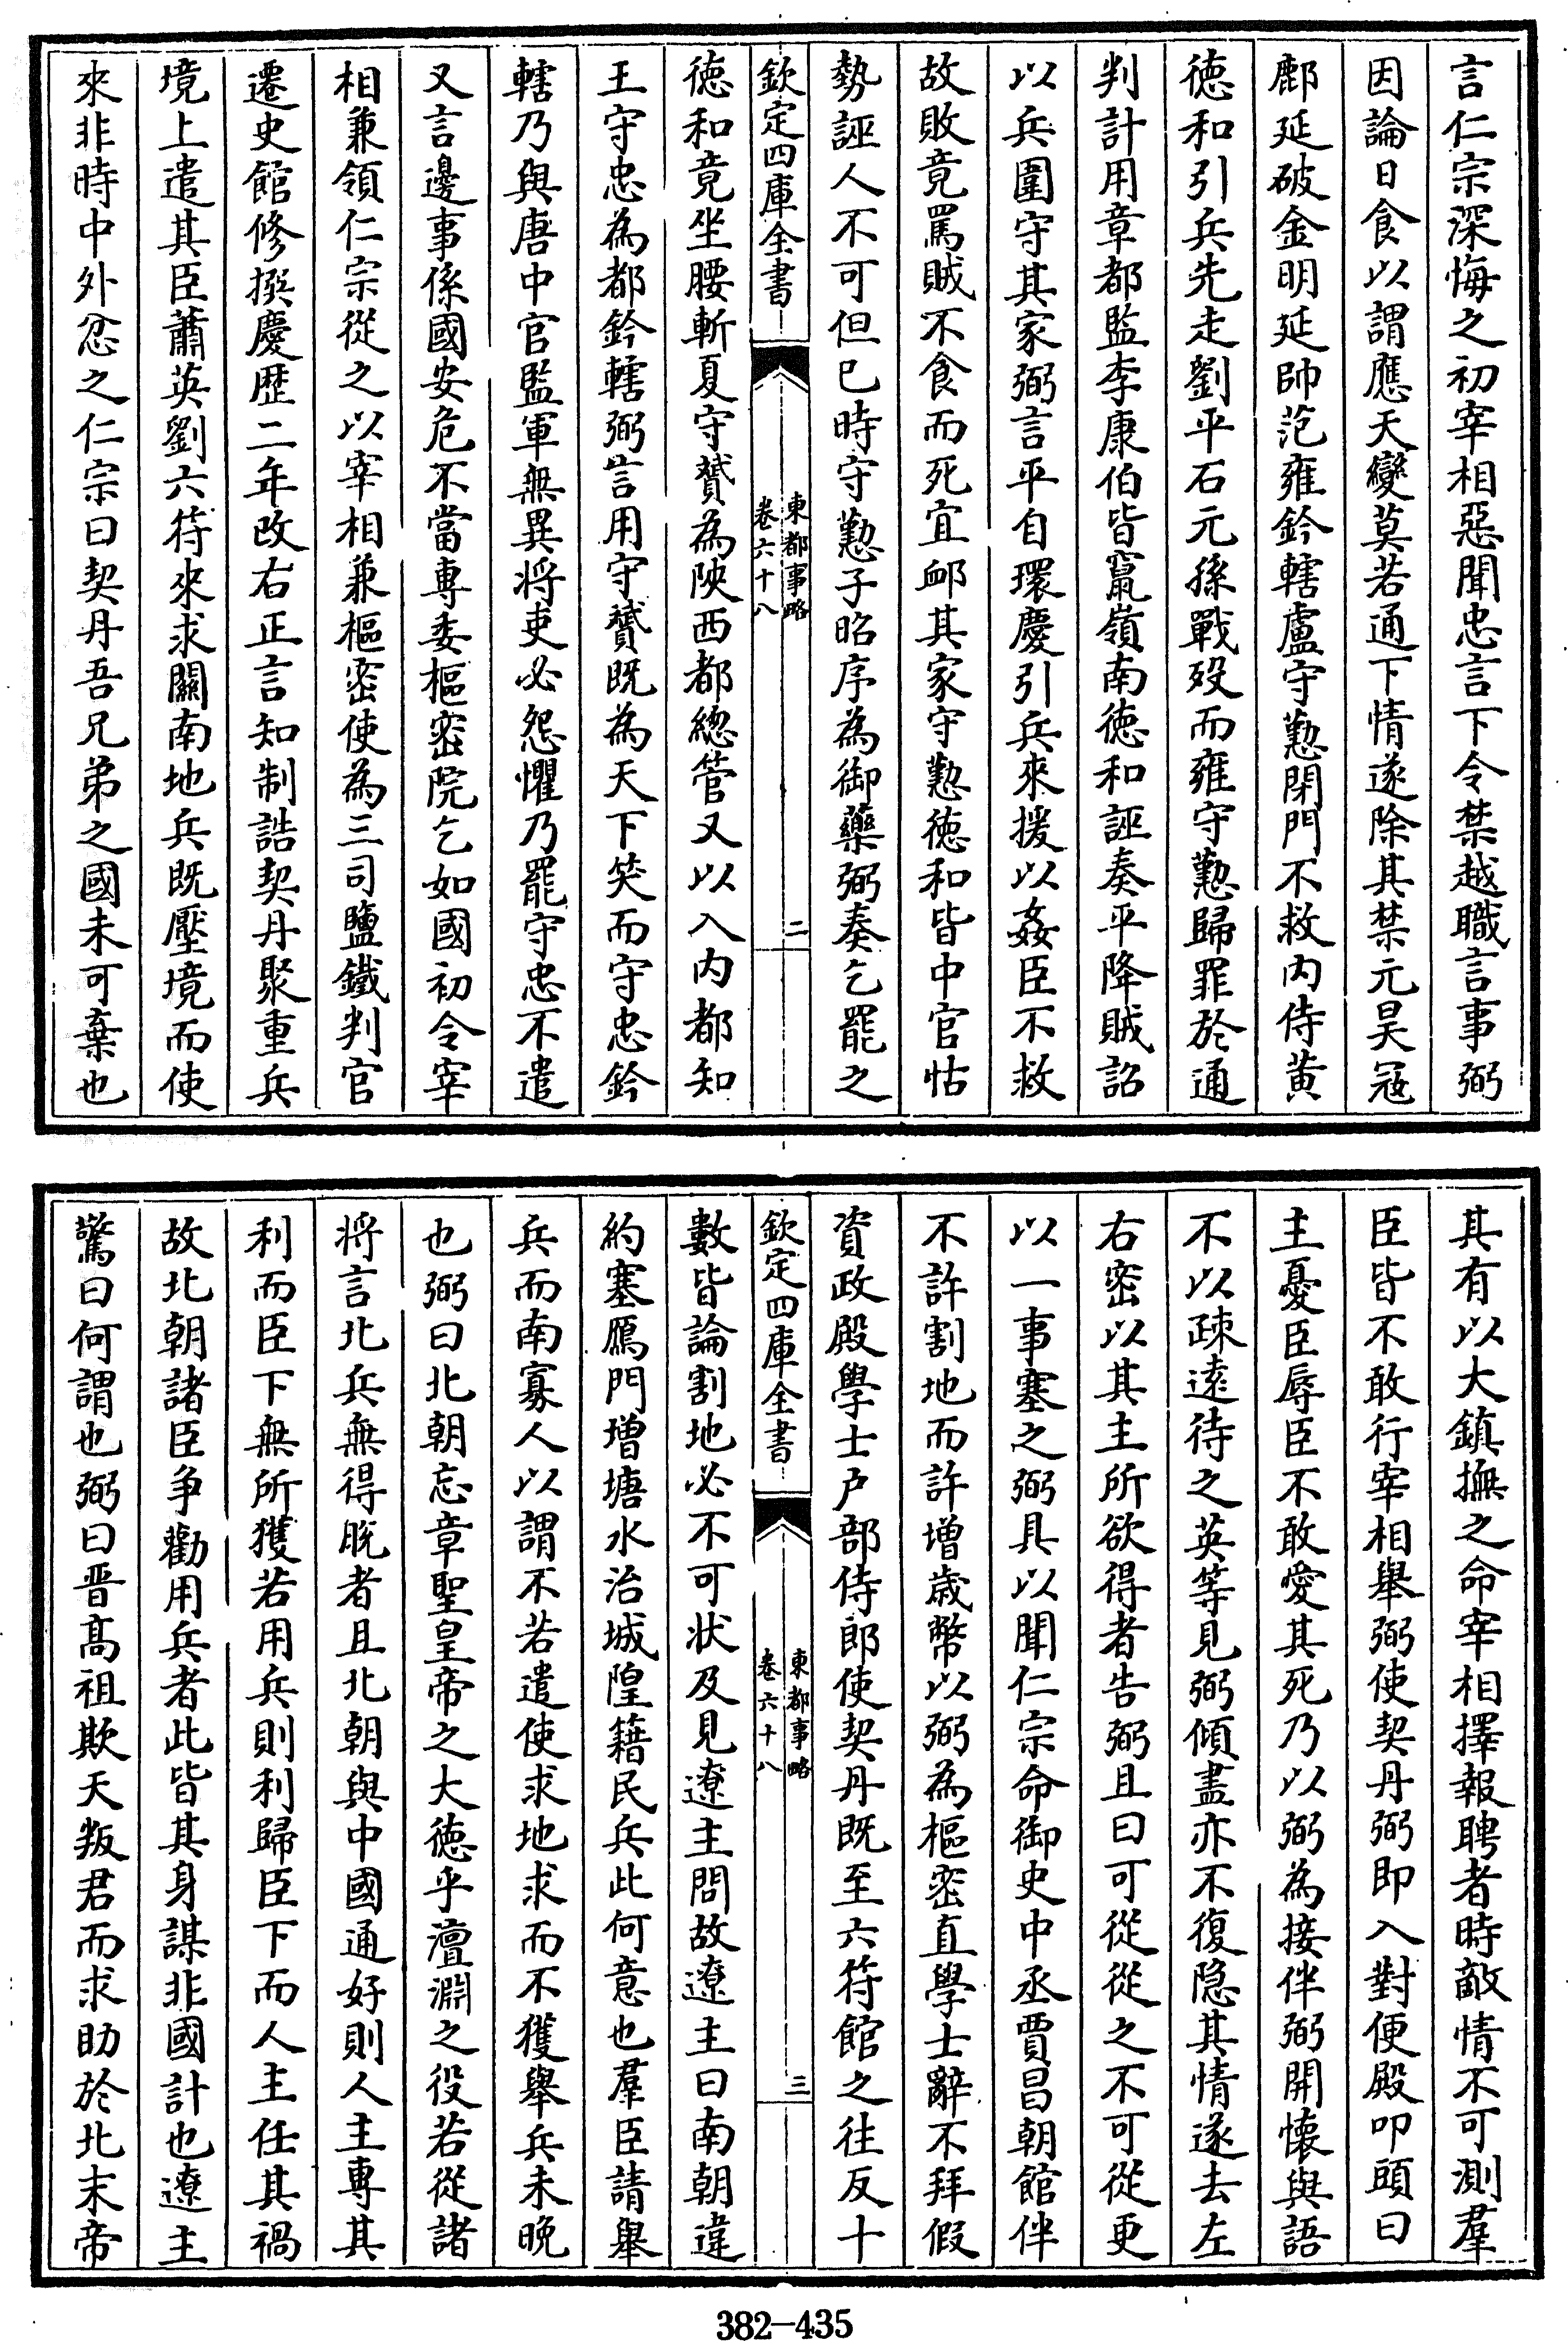 言仁宗深悔之初宰相惡聞忠言下令禁越職言事弼
因論日食以謂應天變莫若通下情遂除其禁元昊冦
鄜延破金明延帥范雍鈐轄盧守懃閉門不救内侍黄
徳和引兵先走劉平石元孫戰殁而雍守懃歸罪於通
判計用章都監李康伯皆竄嶺南徳和誣奏平降賊詔
以兵圍守其家弼言平自環慶引兵來援以姦臣不救
故敗竟罵賊不食而死宜䘏其家守懃徳和皆中官怙
勢誣人不可但已時守懃子昭序為御藥弼奏乞罷之
欽定四庫全書
東都事略
卷六十八
二
徳和竟坐腰斬夏守贇為陜西都總管又以入内都知
王守忠為都鈐轄弼言用守贇既為天下笑而守忠鈐
轄乃與唐中官監軍無異将吏必怨懼乃罷守忠不遣
又言邊事係國安危不當専委樞密院乞如國初令宰
相兼領仁宗從之以宰相兼樞密使為三司鹽鐵判官
遷史館修撰慶歴二年改右正言知制誥契丹聚重兵
境上遣其臣蕭英劉六符來求關南地兵既壓境而使
來非時中外忿之仁宗曰契丹吾兄弟之國未可棄也
其有以大鎮撫之命宰相擇報聘者時敵情不可測羣
臣皆不敢行宰相舉弼使契丹弼即入對便殿叩頭曰
主憂臣辱臣不敢愛其死乃以弼為接伴弼開懐與語
不以疎逺待之英等見弼傾盡亦不復隠其情遂去左
右密以其主所欲得者告弼且曰可從從之不可從更
以一事塞之弼具以聞仁宗命御史中丞賈昌朝館伴
不許割地而許増歳幣以弼為樞密直學士辭不拜假
資政殿學士户部侍郎使契丹既至六符館之往反十
欽定四庫全書
東都事略
卷六十八
三
數皆論割地必不可状及見遼主問故遼主曰南朝違
約塞鴈門增塘水治城隍籍民兵此何意也羣臣請舉
兵而南寡人以謂不若遣使求地求而不獲舉兵未晩
也弼曰北朝忘章聖皇帝之大徳乎澶淵之役若從諸
将言北兵無得脱者且北朝與中國通好則人主専其
利而臣下無所獲若用兵則利歸臣下而人主任其禍
故北朝諸臣争勸用兵者此皆其身謀非國計也遼主
驚曰何謂也弼曰晋髙祖欺天叛君而求助於北末帝
382-435